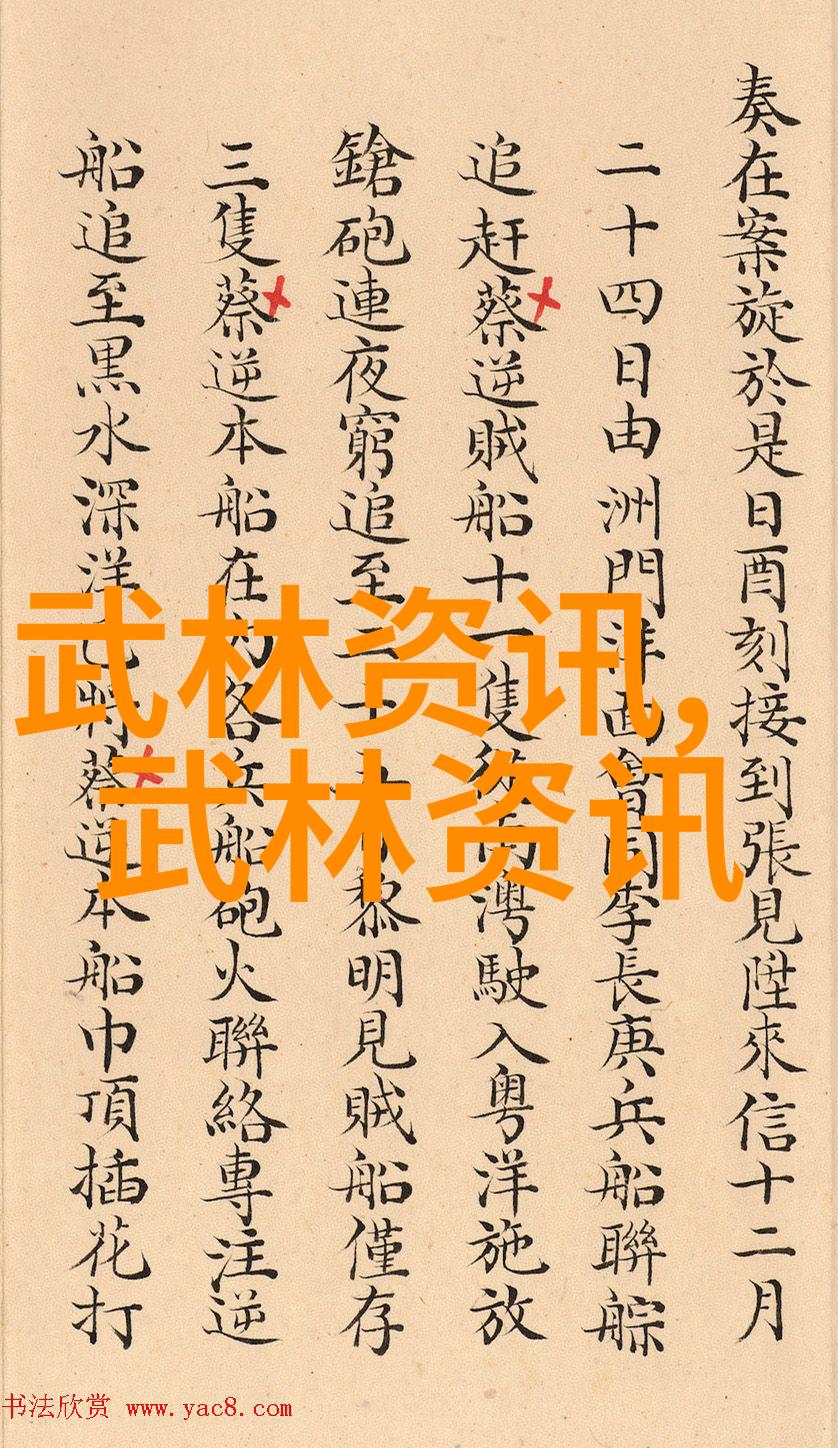 奏在案旋於是日酉刻接到張見陞來信十二月
二十四日由洲門洋面會同李長庚兵船聯䑸
追赶蔡逆賊船十一隻從南灣駛入粵洋施放
鎗砲連夜窮追至二十五日黎明見賊船僅存
三隻蔡逆本船在內各兵船砲火聯絡專注逆
船追至黑水深洋已將蔡逆本船巾頂插花打
武林资讯,
武林资讯
书法欣赏 www.yac8.com